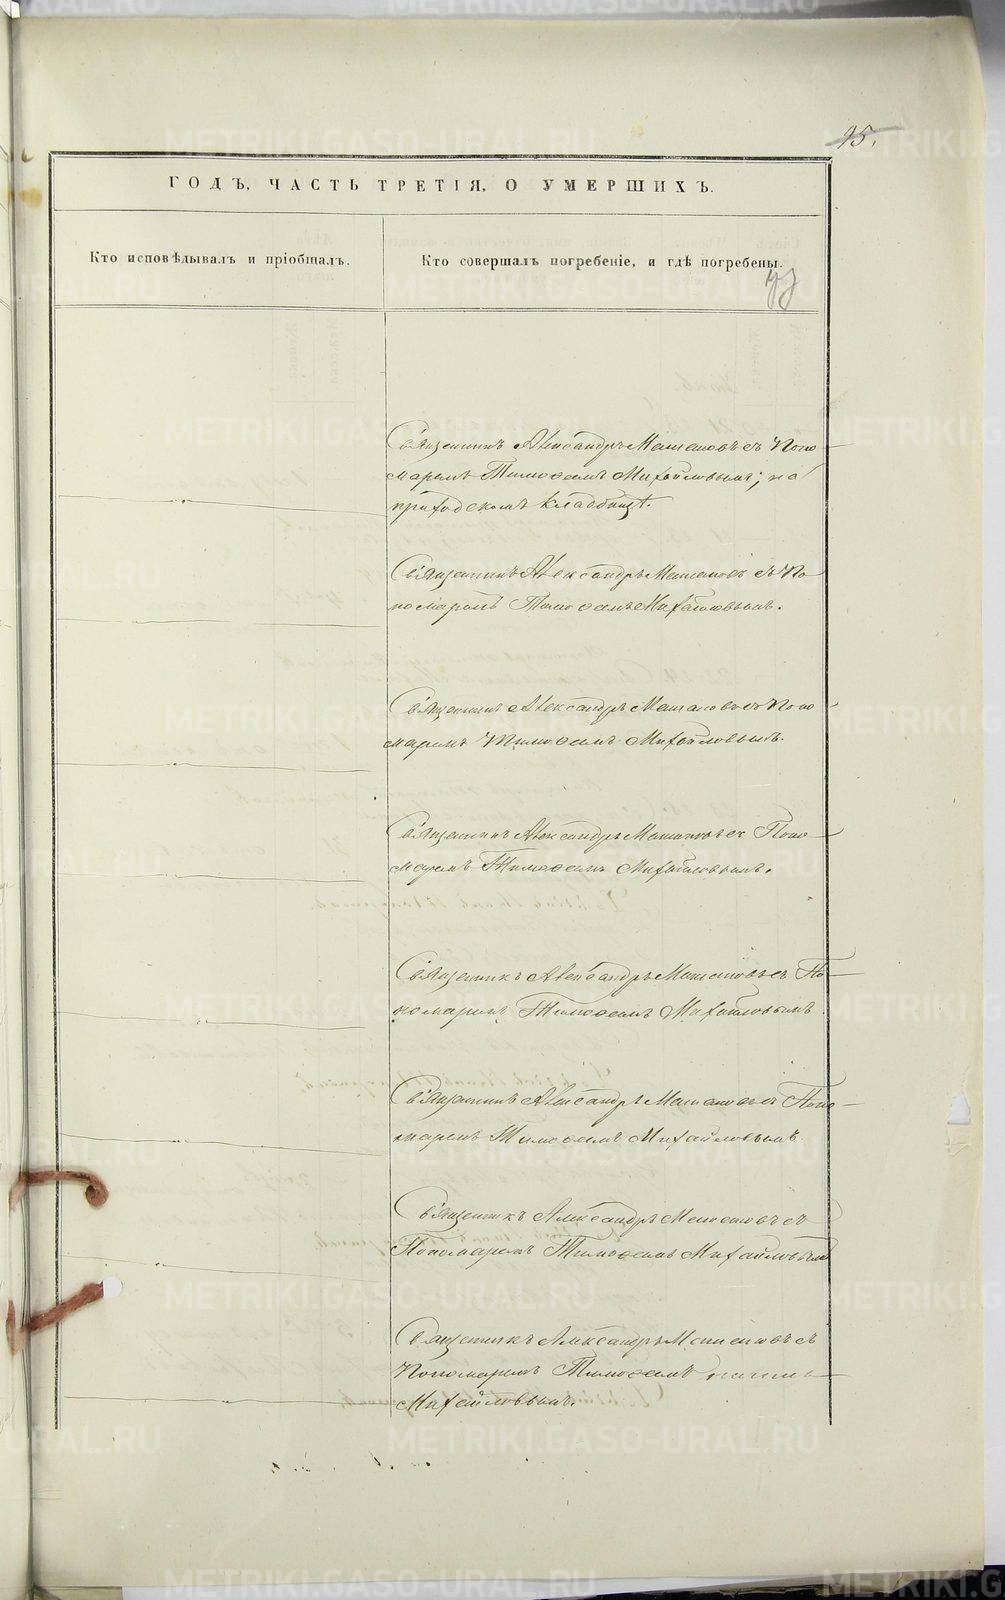 45.
ГОДЪ, ЧАСТЬ ТРЕТІЯ, О УМЕРШИХЪ.
Кто исповѣдывалъ и пріобщалъ.
Кто совершалъ погребеніе, и гдѣ погребены.
Священникъ Александръ съ Поно-
маремъ Тимофеемъ Михайловымъ; на
приходскомъ кладбищѣ.
Священникъ Александръ съ По-
номаремъ Тимофеемъ Михайловымъ.
Священникъ Александръ съ Поно-
маремъ Тимофеемъ Михайловымъ.
Священникъ Александръ съ Поно-
маремъ Тимофеемъ Михайловымъ.
Священникъ Александръ съ По-
номаремъ Тимофеемъ Михайловымъ
Священникъ Александръ съ Поно-
маремъ Тимофеемъ Михайловымъ.
Священникъ Александръ съ
Пономаремъ Тимофеемъ Михайловымъ
Священникъ Александръ съ
Пономаремъ Тимофеемъ
Михайловымъ.
METRIKI.GASO-URAL.RU